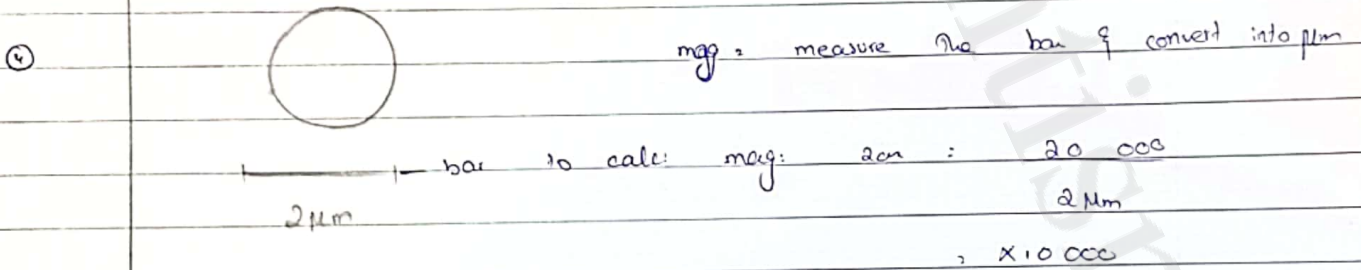 ④ mag = measure the bar & convert into µm
bar to calc: mag: 2cm = 20 000
2µm
2 µm
= ×10 000